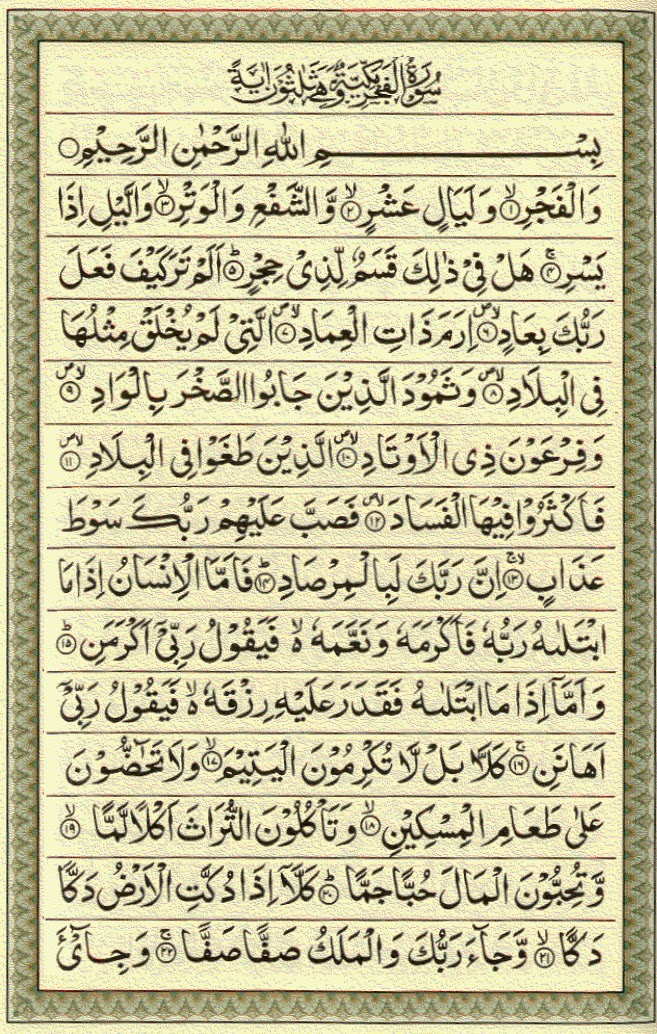 سُوْرَةُ الْفَجْرِ مَكِّيَّةٌ وَّهِيَ ثَلٰثُوْنَ اٰيَةً
بِسْـــــــــمِ اللّٰهِ الرَّحْمٰنِ الرَّحِيْمِ ۝
وَالْفَجْرِ ۙ﴿۱﴾ وَلَيَالٍ عَشْرٍ ۙ﴿۲﴾ وَّالشَّفْعِ وَالْوَتْرِ ۙ﴿۳﴾ وَالَّيْلِ اِذَا
يَسْرِ ۚ﴿۴﴾ هَلْ فِيْ ذٰلِكَ قَسَمٌ لِّذِيْ حِجْرٍ ؕ﴿۵﴾ اَلَمْ تَرَ كَيْفَ فَعَلَ
رَبُّكَ بِعَادٍ ۪ۙ﴿۶﴾ اِرَمَ ذَاتِ الْعِمَادِ ۪ۙ﴿۷﴾ الَّتِيْ لَمْ يُخْلَقْ مِثْلُهَا
فِي الْبِلَادِ ۪ۙ﴿۸﴾ وَثَمُوْدَ الَّذِيْنَ جَابُوا الصَّخْرَ بِالْوَادِ ۪ۙ﴿۹﴾
وَفِرْعَوْنَ ذِي الْاَوْتَادِ ۪ۙ﴿۱۰﴾ الَّذِيْنَ طَغَوْا فِي الْبِلَادِ ۪ۙ﴿۱۱﴾
فَاَكْثَرُوْا فِيْهَا الْفَسَادَ ۪ۙ﴿۱۲﴾ فَصَبَّ عَلَيْهِمْ رَبُّكَ سَوْطَ
عَذَابٍ ۚۙ﴿۱۳﴾ اِنَّ رَبَّكَ لَبِالْمِرْصَادِ ؕ﴿۱۴﴾ فَاَمَّا الْاِنْسَانُ اِذَا مَا
ابْتَلٰىهُ رَبُّهٗ فَاَكْرَمَهٗ وَنَعَّمَهٗ ۙ۬ فَيَقُوْلُ رَبِّيْٓ اَكْرَمَنِ ؕ﴿۱۵﴾
وَاَمَّآ اِذَا مَا ابْتَلٰىهُ فَقَدَرَ عَلَيْهِ رِزْقَهٗ ۙ۬ فَيَقُوْلُ رَبِّيْٓ
اَهَانَنِ ۚ﴿۱۶﴾ كَلَّا بَلْ لَّا تُكْرِمُوْنَ الْيَتِيْمَ ۙ﴿۱۷﴾ وَلَا تَحٰٓضُّوْنَ
عَلٰى طَعَامِ الْمِسْكِيْنِ ۙ﴿۱۸﴾ وَتَاْكُلُوْنَ التُّرَاثَ اَكْلًا لَّمًّا ۙ﴿۱۹﴾
وَّتُحِبُّوْنَ الْمَالَ حُبًّا جَمًّا ؕ﴿۲۰﴾ كَلَّآ اِذَا دُكَّتِ الْاَرْضُ دَكًّا
دَكًّا ۙ﴿۲۱﴾ وَّجَآءَ رَبُّكَ وَالْمَلَكُ صَفًّا صَفًّا ۚ﴿۲۲﴾ وَجِايْٓءَ